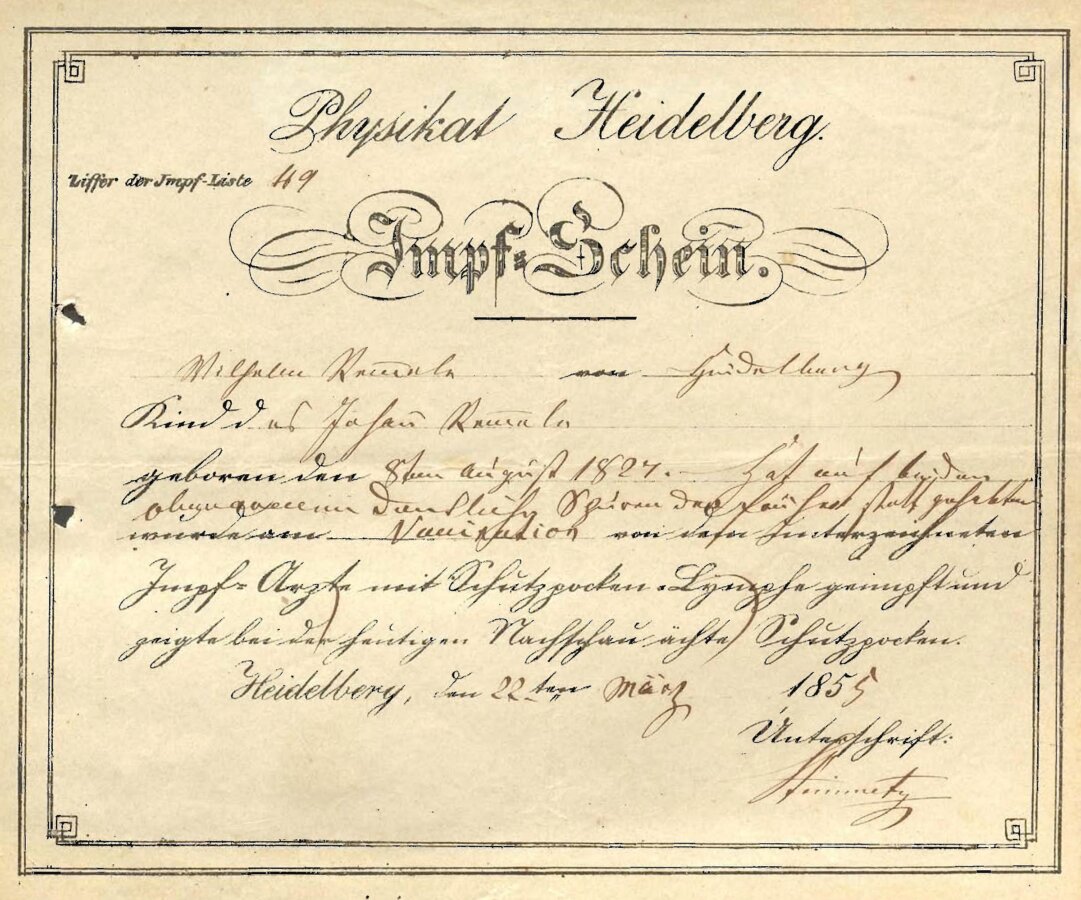 Physikat Heidelberg.
Ziffer der Impf-Liste 49
Impf-Schein.
Wilhelm Remele von Heidelberg
Kind des Johann Remele
geboren den 8ten August 1827. Hat auf beiden
deutliche Spuren der früher statt gehabten
wurde am Vaccination von dem Unterzeichneten
Impf-Arzte mit Schutzpocken-Lymphe geimpft und
zeigte bei der heutigen Nachschau ächte Schutzpocken.
Heidelberg, den 22ten März 1855
Unterschrift:
Steinmetz